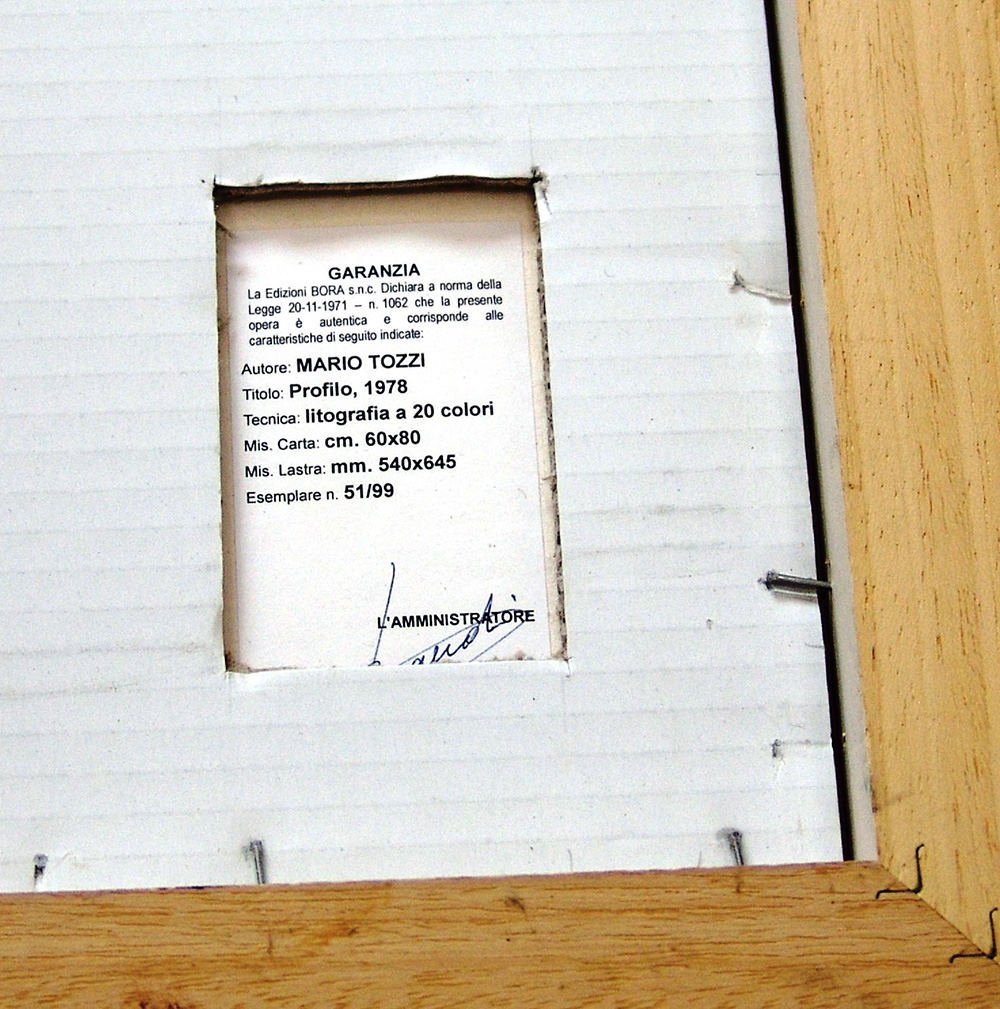 GARANZIA
La Edizioni BORA s.n.c. Dichiara a norma della
Legge 20-11-1971 – n. 1062 che la presente
opera è autentica e corrisponde alle
caratteristiche di seguito indicate:
Autore: MARIO TOZZI
Titolo: Profilo, 1978
Tecnica: litografia a 20 colori
Mis. Carta: cm. 60x80
Mis. Lastra: mm. 540x645
Esemplare n. 51/99
L'AMMINISTRATORE